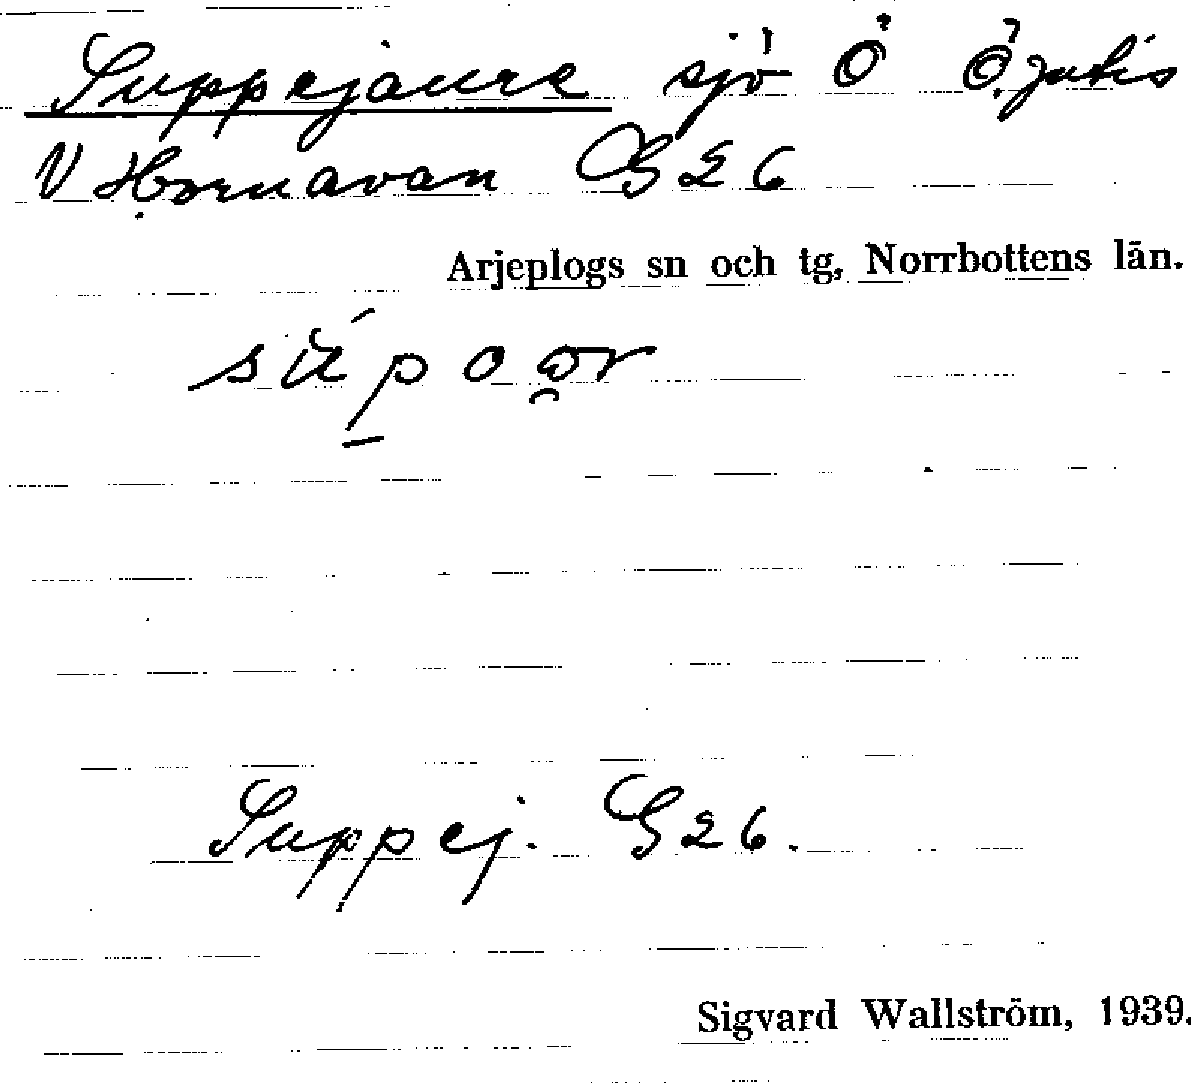 Suppejaure sjö Ö Ö. Jutis
V Hornavan G S26
Arjeplogs sn och tg, Norrbottens län.
Suppej. G S26.
Sigvard Wallström, 1939.